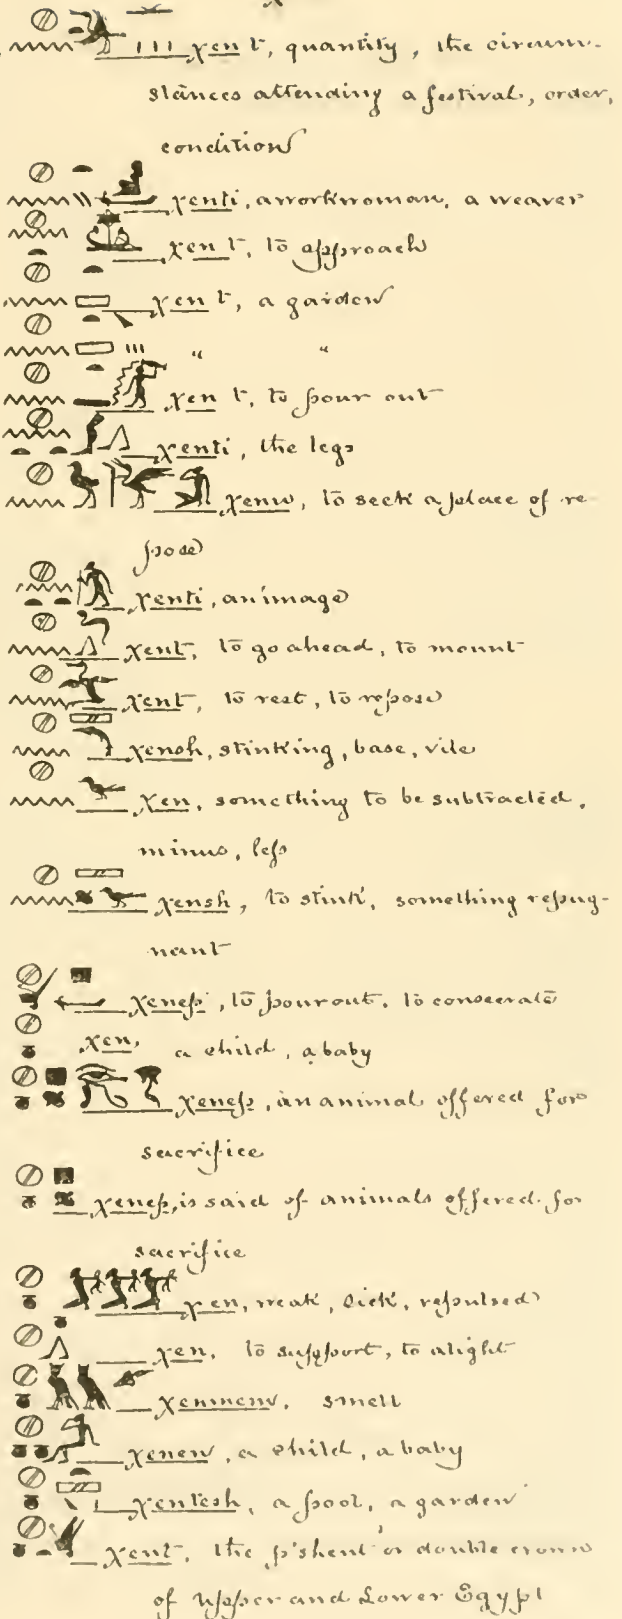 χen t, quantity, the circum-
stances attending a festival, order,
condition
χenti, a workwoman, a weaver
χen t, to approach
χen t, a garden
" "
χen t, to pour out
χenti, the legs
χenu, to seek a place of re
pose
χenti, an image
χent, to go ahead, to mount
χent, to rest, to repose
χensh, stinking, base, vile
χen, something to be subtracted,
minus, less
χensh, to stink, something repug-
nant
χenep, to pour out, to consecrate
χen, a child, a baby
χenep, an animal offered for
sacrifice
χenep, is said of animals offered for
sacrifice
χen, weak, sick, repulsed
χen, to support, to alight
χenmenu, smell
χenew, a child, a baby
χentesh, a pool, a garden
χent, the p'shent or double crown
of Upper and Lower Egypt